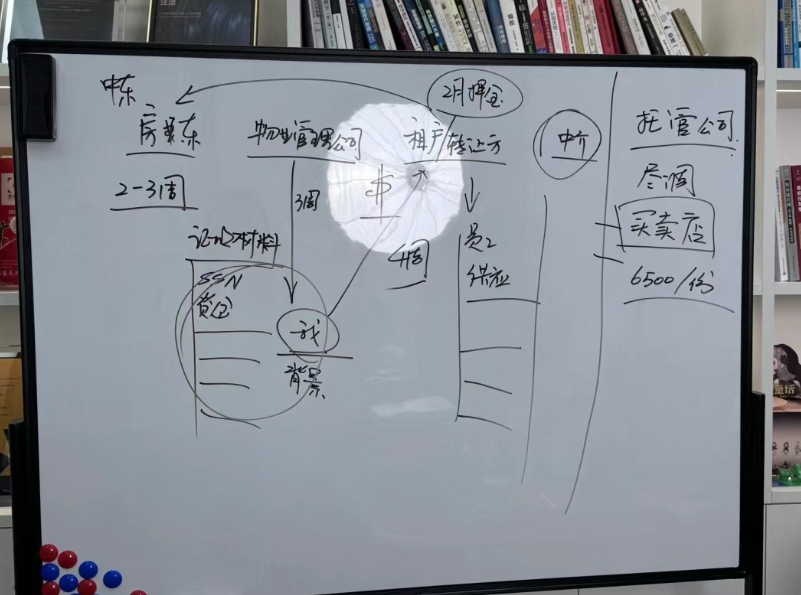 中东
房东
2-3周
物业管理公司
3周
证明材料
SSN
资金
我
背景
$
4周
2月押金
租户转让方
员工
供应
中介
托管公司
尽调
买卖店
6500/份